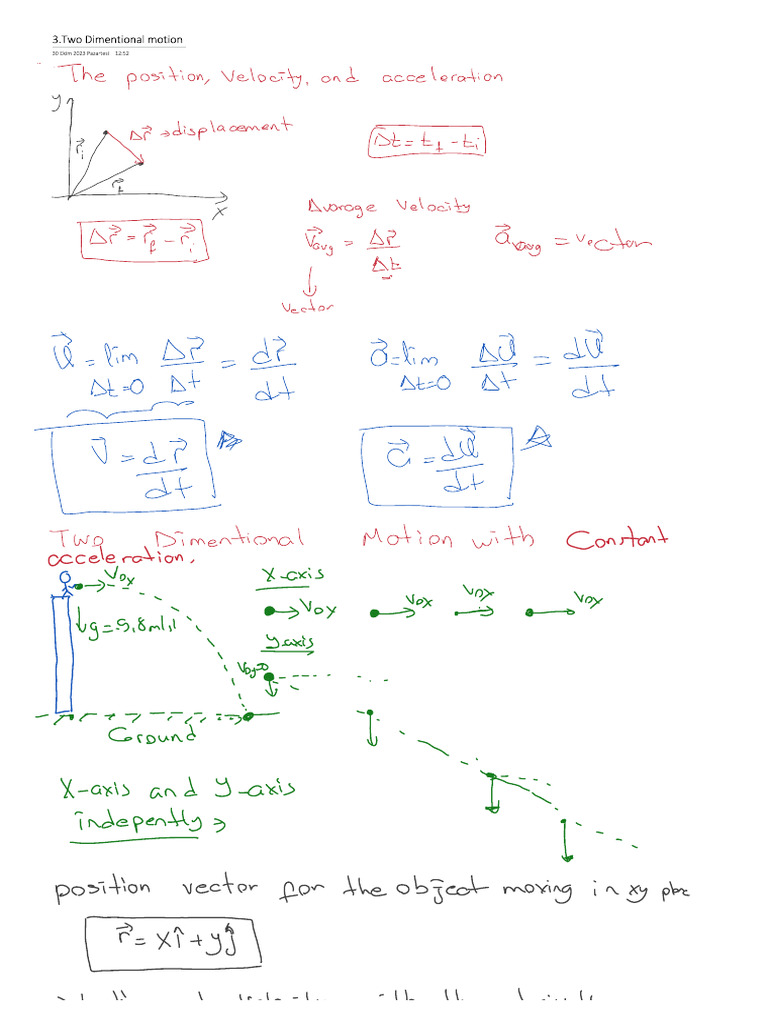 3.Two Dimentional motion
30 Ekim 2023 Pazartesi 12:52
The position, Velocity, and acceleration
y
Δr⃗ → displacement
r⃗i
r⃗f
x
Δt = tf - ti
Δr⃗ = r⃗f - r⃗i
Average Velocity
V⃗avg = Δr⃗/Δt
a⃗avg = vector
vector
V⃗ = lim Δt=0 Δr⃗/Δt = dr⃗/dt
a⃗ = lim Δt=0 ΔV⃗/Δt = dV⃗/dt
V⃗ = dr⃗/dt
a⃗ = dV⃗/dt
Two Dimentional Motion with Constant
acceleration.
Vox
g=9,8m/s²
X-axis
Vox Vox Vox Vox
y-axis
Voy=0
Ground
X-axis and y-axis
indepently →
position vector for the object moving in xy
r⃗ = xî + yĵ